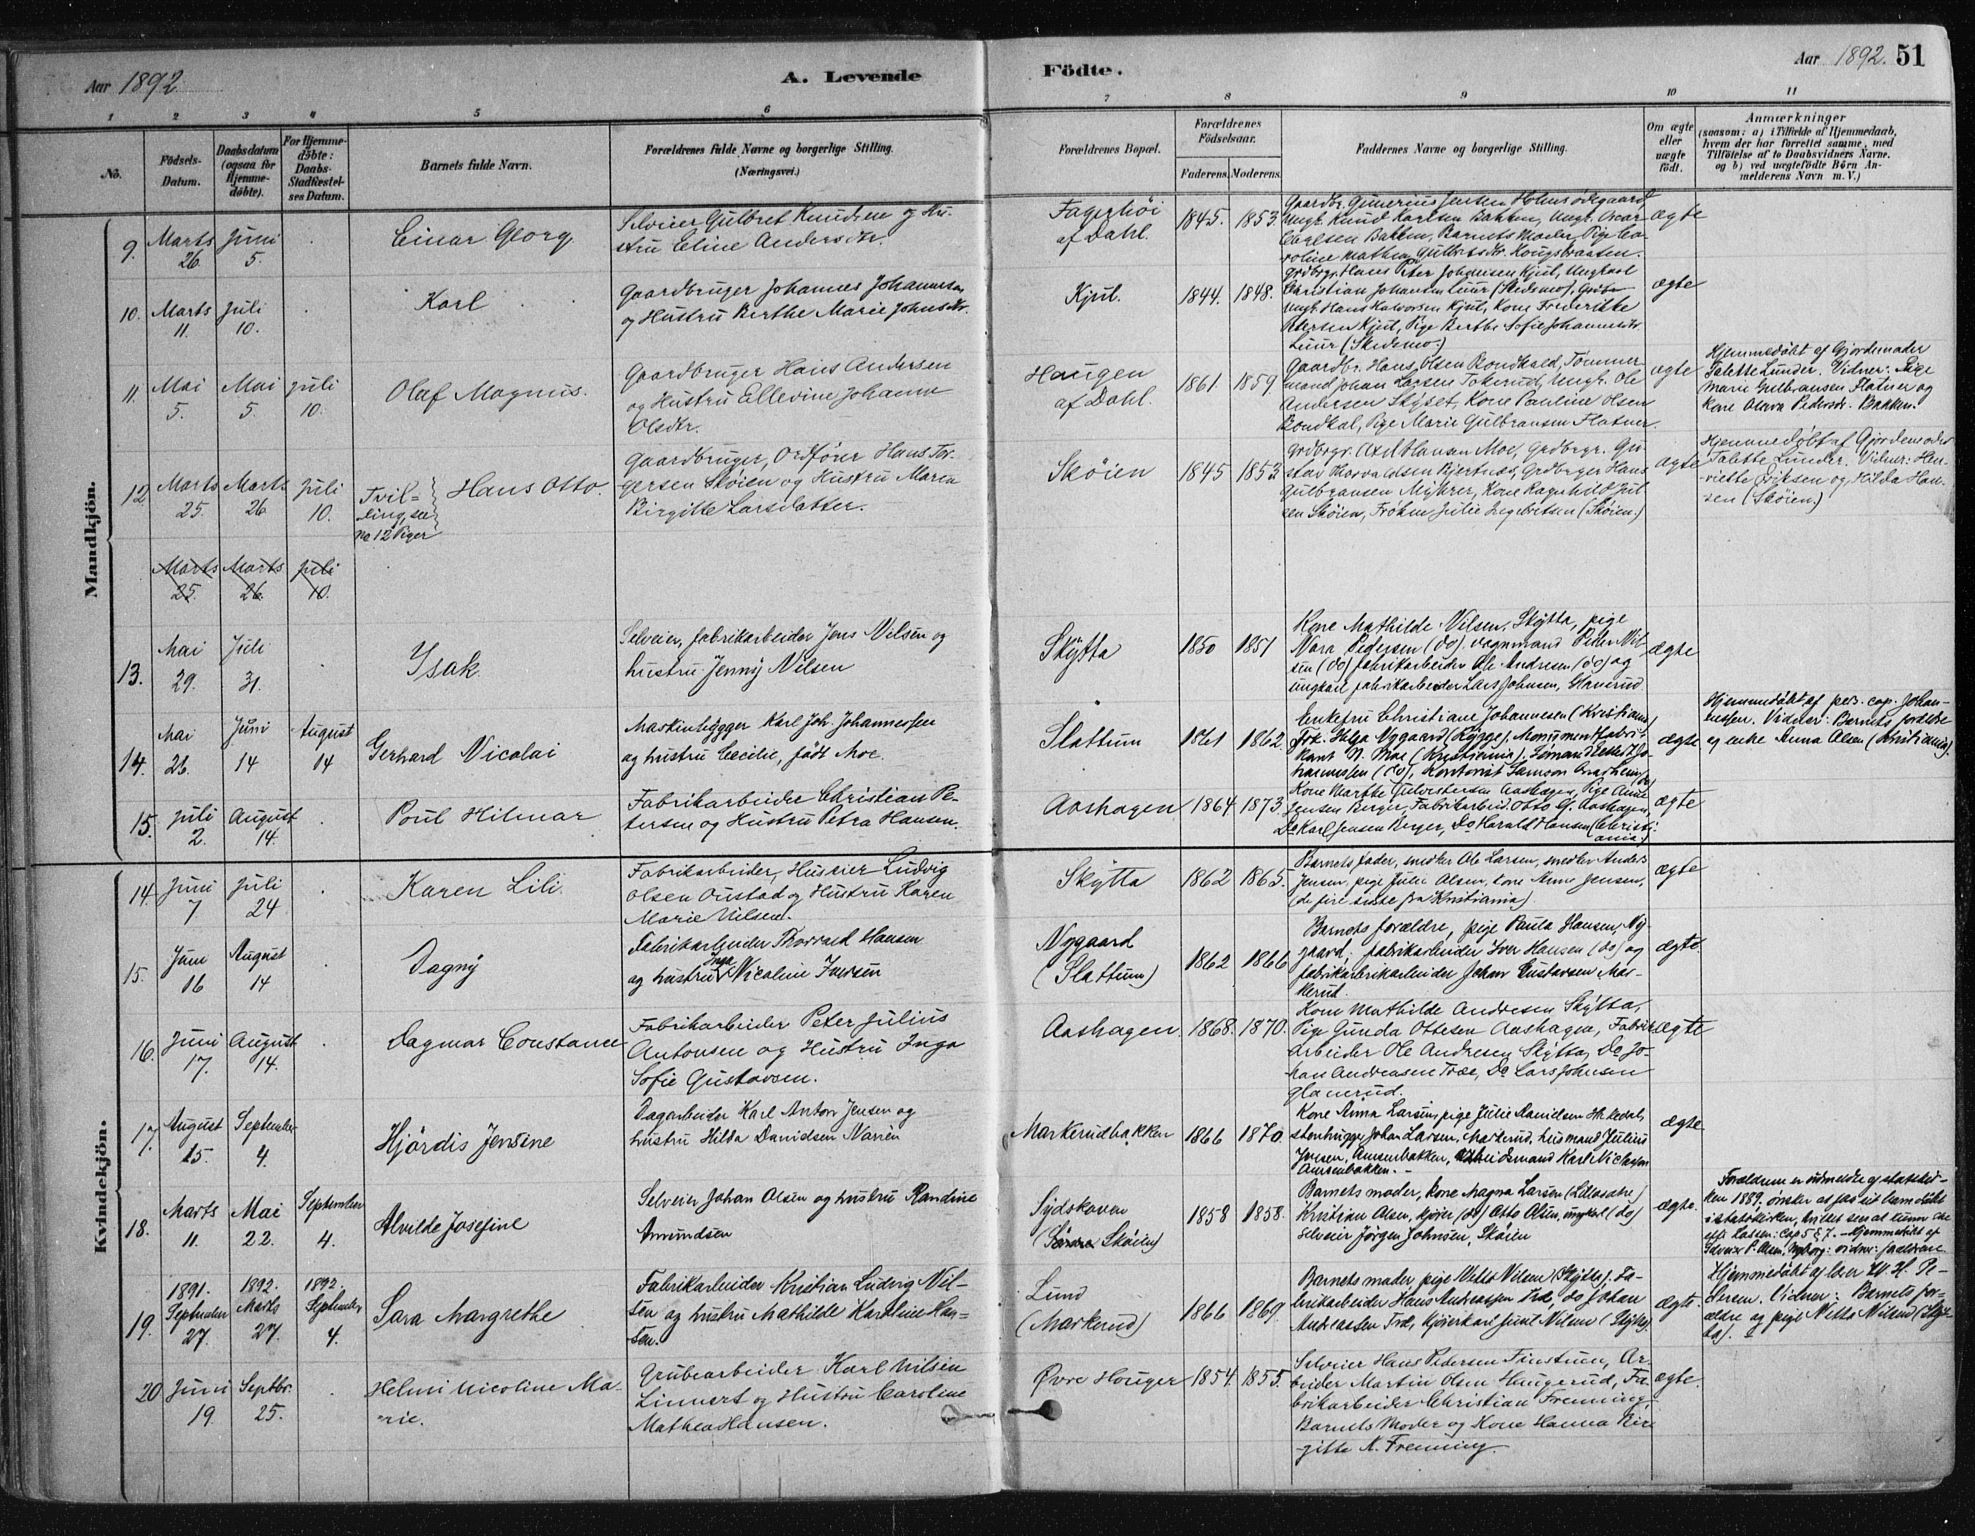 Aar 1892.
A. Levende
Födte.
Aar 1892. 51
1 2 3 4 5 6 7 8 9 10 11
No.
Födsels-
Datum.
Daabsdatum
(ogsaa for
Hjemme-
döbte).
For Hjemme-
döbte:
Daabs-
Stadfæstel-
ses Datum.
Barnets fulde Navn.
Forældrenes fulde Navne og borgerlige Stilling.
(Næringsvei.)
Forældrenes Bopæl.
Forældrenes
Födselsaar.
Faderens. Moderens.
Faddernes Navne og borgerlige Stilling.
Om ægte
eller
uægte
födt.
Anmærkninger
(saasom: a) i Tilfælde af Hjemmedaab,
hvem der har forrettet samme, med
Tilföielse af to Daabsvidners Navne.
og b) ved uægtefödte Börn An-
melderens Navn m. V.)
Mandkjön.
9. Marts 26. Juni 5.
Einar Georg
Selveier Gulbret Knudsen og Hu-
stru Eline Andersdtr.
Fagerhöi
af Dahl.
1845. 1853.
Gaardbr. Gunerius Jensen Holmsødegaard
Ungk. Knud Karlsen Bakken, Ungk. Oscar
Carlsen Bakken, Barnets Moder, Pige Ca-
roline Mathea Gulbretsdtr. Kongsbraaten.
ægte
10. Marts 11. Juli 10.
Karl
Gaardbruger Johannes Johannesen
og Hustru Berthe Marie Johnsdtr.
Kjul.
1844. 1848.
Grdbrgr. Hans Peter Johansen Kjul, Ungkarl
Christian Johansen Luur (Skedsmo),
Ungk. Hans Halvorsen Kjul, Kone Frederikke
Petersen Kjul, Pige Berthe Sofie Johannesdtr.
Luur (Skedsmo.)
ægte
11. Mai 5. Mai 5. Juli 10.
Olaf Magnus.
Gaardbruger Hans Andersen
og Hustru Ellevine Johanne
Olsdtr.
Haugen
af Dahl.
1861. 1859.
Gaardbr. Hans Olsen Rondkald, Tømmer
mand Johan Larsen Tokerud, Ungk. Ole
Andersen Skyset, Kone Pauline Olsen
Rondkal, Pige Marie Gulbransen Flatner.
ægte
Hjemmedøbt af Gjordemoder
Talette Lunder. Vidner: Pige
Marie Gulbransen Flatner og
Kone Oleva Pedersdr. Bakken.
12. Marts 25. Marts 26 Juli 10.
Tvil-
ling se
No 12 Piger
Hans Otto.
Gaardbruger, Ordfører Hans Tor-
gersen Skøien og Hustru Maria
Birgitte Larsdatter.
Skøien
1845 1853
Grdbrgr. Axel Hansen Moe, Grdbrgr. Gu-
stav Thorvaldsen Kjertnæs, Grdbrger Hans
Gulbransen Myhrer, Kone Ragnhild Jul
sen Skøien, Frøken Julie Ingebretsen (Skøien.)
ægte
Hjemmedøbt af Gjordemoder
Talette Lunder. Vidner: Hen-
riette Eriksen og Hilda Han-
sen (Skøien)
Marts 25. Marts 26. Juli 10.
13. Mai 29. Juli 31.
Ysak
Selveier, fabrikarbeider Jens Nilsen og
hustru Jenny Nilsen
Skytta
1850 1851
Kone Mathilde Nilsen, Skytta, pige
Nora Pedersen (do). Dagmand Peder Nil-
sen (do) fabrikarbeider Ole Andresen (do) og
ungkarl fabrikarbeider Lars Johnsen, Glanerud
ægte
14. Mai 26. Juni 14 August 14
Gerhard Nicolai
Maskinbygger Karl Joh. Johannessen
og hustru Cecilie, født Moe.
Slattum
1861 1862
Enkefru Christiane Johannesen (Kristiania)
Frk. Helga Nygaard (Rygge), Monumentfabri-
kant N. Moe (Kristiania), Sømand
hannessen (do), Kontorist
ægte
Hjemmedøbt af pers. cap. Johan-
nessen. Vidner: Barnets forældre
og enke Anna Olsen (Kristiania).
15. Juli 2. August 14.
Poul Hilmar
Fabrikarbeider Christian Pe-
tersen og Hustru Petra Hansen.
Aashagen
1864 1873.
Kone Marthe Aashagen, Pige
Jensen Berger, Fabrikarbeid. Otto G. Aashagen,
Do Karl Jensen Berger, Do Harald Hansen (Christi-
ania)
ægte
Kvindekjön.
14. Juni 7 Juli 24
Karen Lili.
Fabrikarbeider, Huseier Ludvig
Olsen Oustad og Hustru Karen
Marie Nilsen.
Skytta
1862 1865.
Barnets fader, smed Ole Larsen, Anders
Jensen, pige Julie Olsen, kone Anne Jensen,
(de fire sidste fra Kristiania)
ægte
15. Juni 16 August 14
Dagny
Fabrikarbeider Thorvald Hansen
og hustru Inga Nicoline Iversen
Nygaard
(Slattum)
1862 1866
Barnets forældre, pige Paula Hansen, Ny-
gaard, fabrikarbeider Iver Hansen (do) og
fabrikarbeider Johan Gustavsen Mar-
kerud.
ægte.
16. Juni 17. August 14.
Dagmar Constance
Fabrikarbeider Peter Julius
Antonsen og Hustru Inga
Sofie Gustavsen.
Aashagen.
1868. 1870.
Kone Mathilde Andresen Skytta,
Pige Gunda Ottesen Aashagen, Fabrik-
arbeider Ole Andresen Skytta, Do Jo-
han Andreasen Træ, Do Lars Johnsen
Glanerud.
ægte
17. August 15. September 4.
Hjördis Jensine
Dagarbeider Karl Anton Jensen og
hustru Hilda Davidsen
Markerudbakken
1866 1870.
Kone Anna Larsen, pige Julie Hakedal,
stenhugger Johan Larsen, Markerud, husmand Julius
Jensen, Aamsenbakken, arbeidsmand Karl Niclassen
Aamsenbakken.
ægte
18. Marts 11. Mai 22. September 4.
Alvilde Josefine
Selveier Johan Olsen og hustru Randine
Amundsen
Sydskoven
(Skøien)
1858 1858.
Barnets moder, kone Magna Larsen (Lillesætre)
Kristian Olsen, kjører (do) Otto Olsen, ungkarl (do)
selveier Jørgen Johnsen, Skøien
ægte.
Forældrene er udmeldte af statskir-
ken 1889, ønsker at faa sit barn døbt
i statskirken, hvilket
Hjemmedøbt af
vidner: forældrene
19. 1891. September 27. 1892. Marts 27. 1892. September 4.
Sara Margrethe
Fabrikarbeider Kristian Ludvig Nil-
sen og hustru Mathilde Karoline Han-
sen.
Lund
(Markerud)
1866 1869.
Barnets moder, pige Netta Nilsen (Skytta), Fa-
brikarbeider Hans Andreassen Træ, do Johan
Andreassen Træ, kjørerkarl Juul Nilsen (Skytta)
ægte.
Hjemmedøbt af lærer W. H. Pe-
tersen. Vidner: Barnets for-
ældre og pige Netta Nilsen (Skyt-
ta).
20 Juni 19. Septbr. 25.
Helmi Nicoline Ma-
rie.
Grubearbeider Karl Nilsen
Linnert og Hustru Caroline
Mathea Hansen.
Øvre Hauger
1854. 1855.
Selveier Hans Pedersen Finstun, Ar-
beider Martin Olsen Haugerud, Fa-
brikarbeider Christian Frenning,
Barnets Moder og Kone Hanna Bir-
gitte N. Frenning.
ægte.